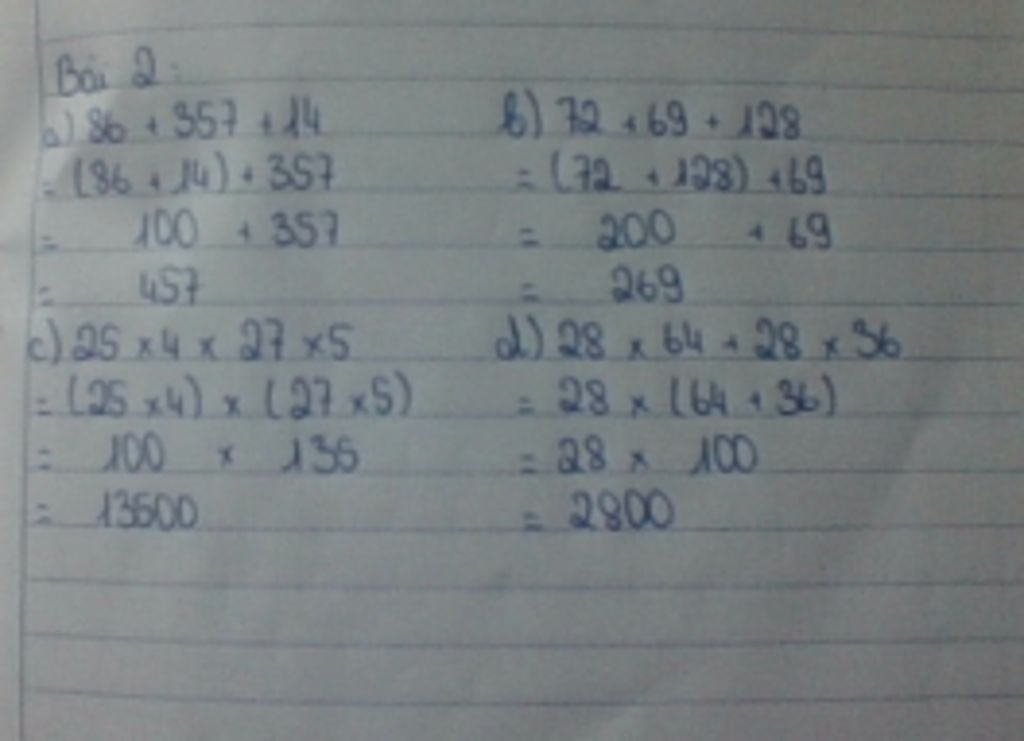 Bài 2:
a) 86 + 357 + 14
= (86 + 14) + 357
= 100 + 357
= 457
b) 72 + 69 + 128
= (72 + 128) + 69
= 200 + 69
= 269
c) 25 x 4 x 27 x 5
= (25 x 4) x (27 x 5)
= 100 x 135
= 13500
d) 28 x 64 + 28 x 36
= 28 x (64 + 36)
= 28 x 100
= 2800